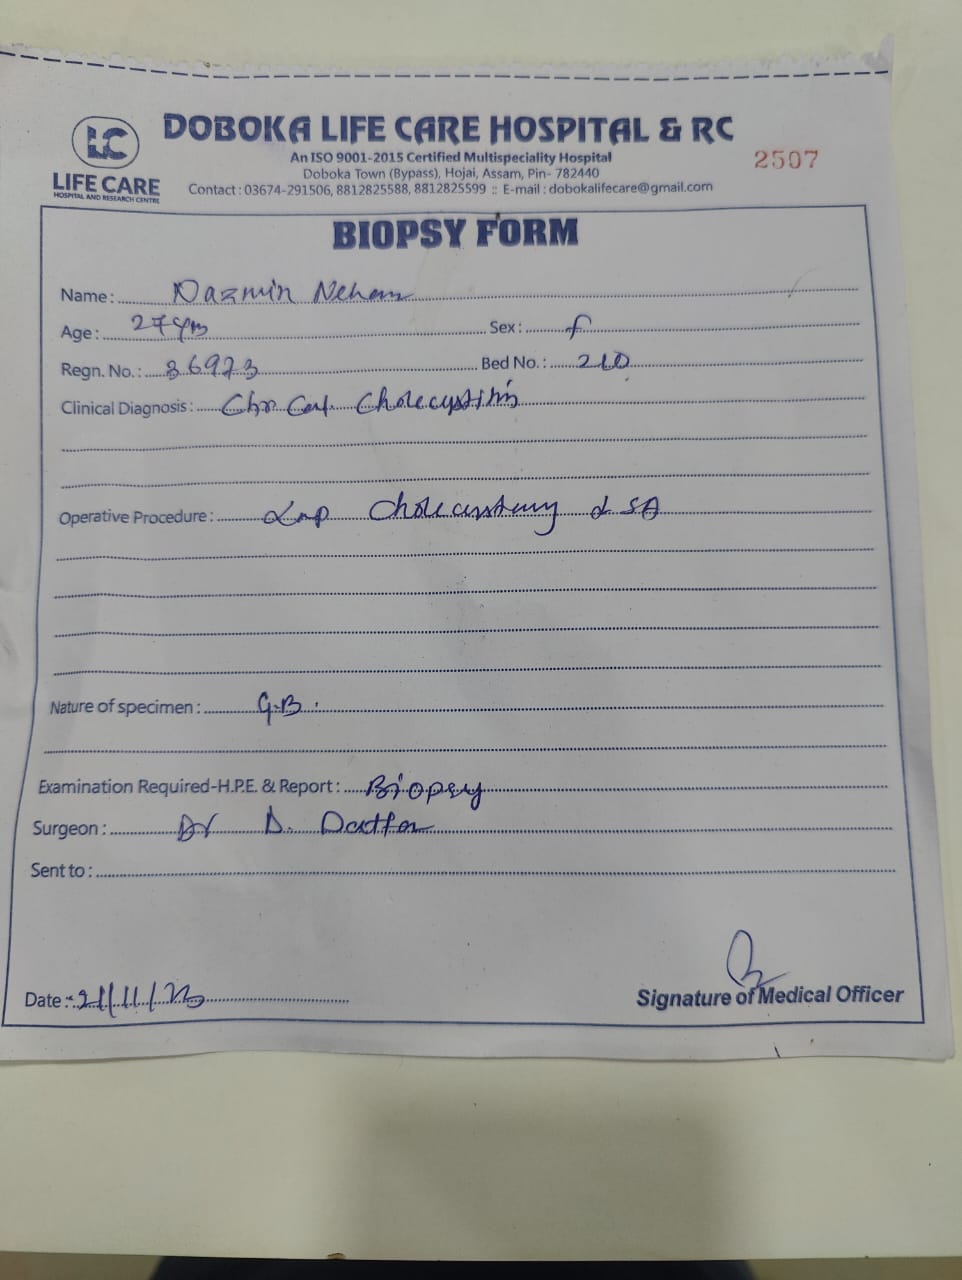 LC
LIFE CARE
HOSPITAL AND RESEARCH CENTRE
DOBOKA LIFE CARE HOSPITAL & RC
An ISO 9001-2015 Certified Multispeciality Hospital
Doboka Town (Bypass), Hojai, Assam, Pin- 782440
Contact : 03674-291506, 8812825588, 8812825599 :: E-mail : dobokalifecare@gmail.com
2507
BIOPSY FORM
Name : Nazmin
Age : 27 yrs Sex : f
Regn. No. : 36923 Bed No. : 210
Clinical Diagnosis : Chr Cal. Cholecystitis
Operative Procedure : Lap SA
Nature of specimen : G.B.
Examination Required-H.P.E. & Report : Biopsy
Surgeon : Dr D. Dutta
Sent to :
Date : 21/11/25
Signature of Medical Officer